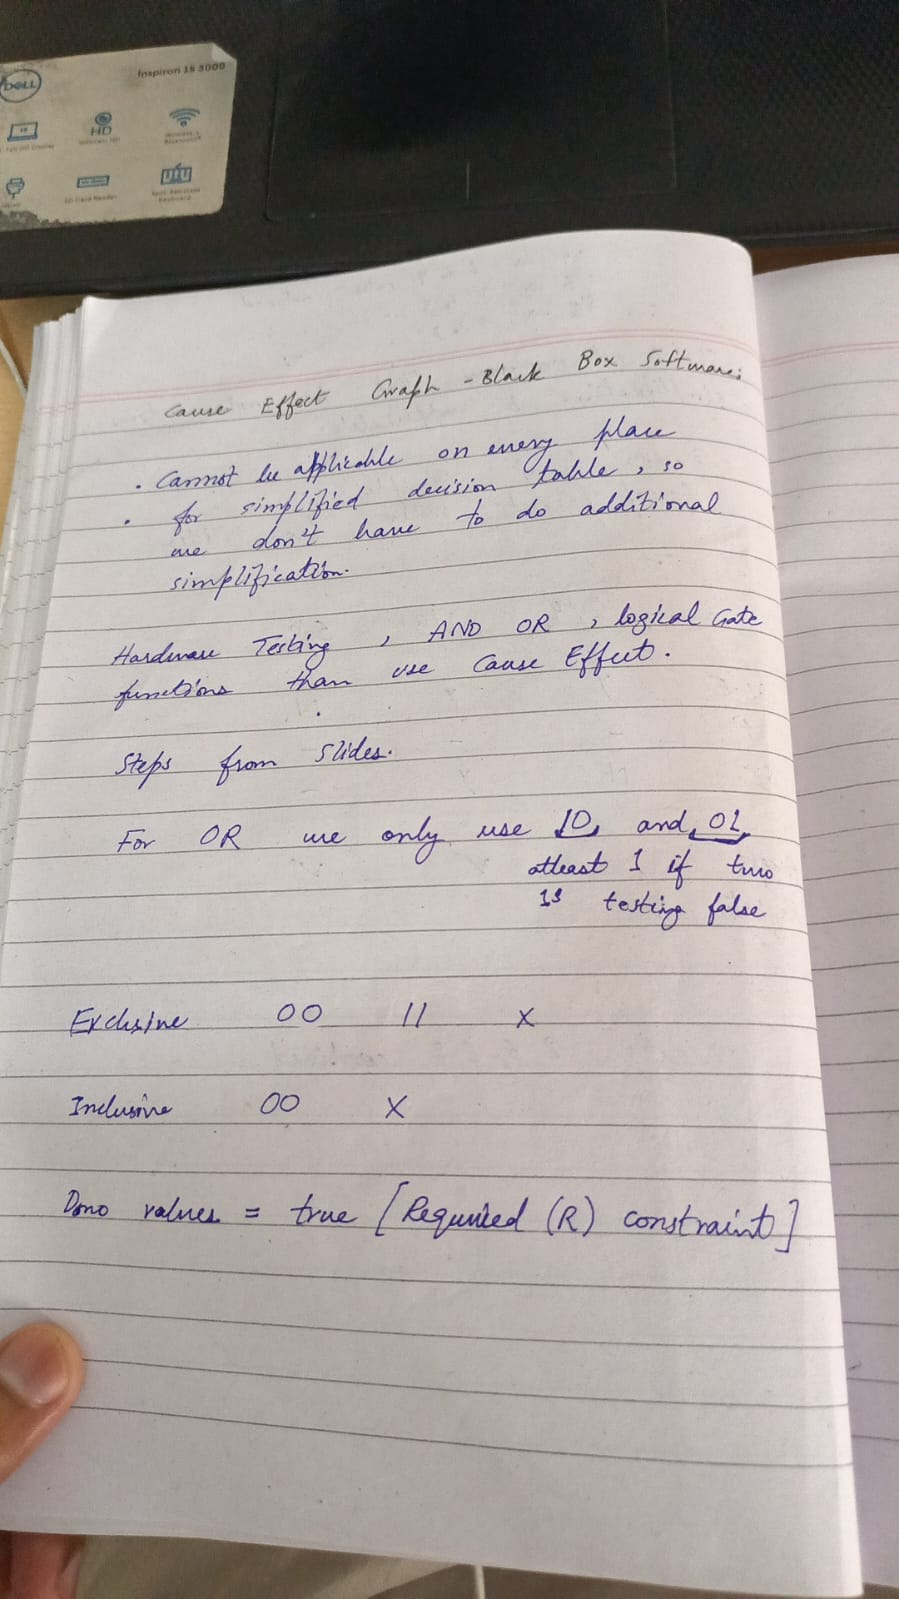 DELL
Inspiron 15 3000
HD
Cause Effect Graph - Black Box Software:
. Cannot be applicable on every place
. for simplified decision table, so
we don't have to do additional
simplification.
Hardware Testing, AND OR, logical Gate
functions than use Cause Effect.
Steps from Slides.
For OR we only use 10, and, 01,
atleast 1 if two
1s testing false
Exclusive 00 11 X
Inclusive 00 X
Dono values = true [Required (R) constraint]